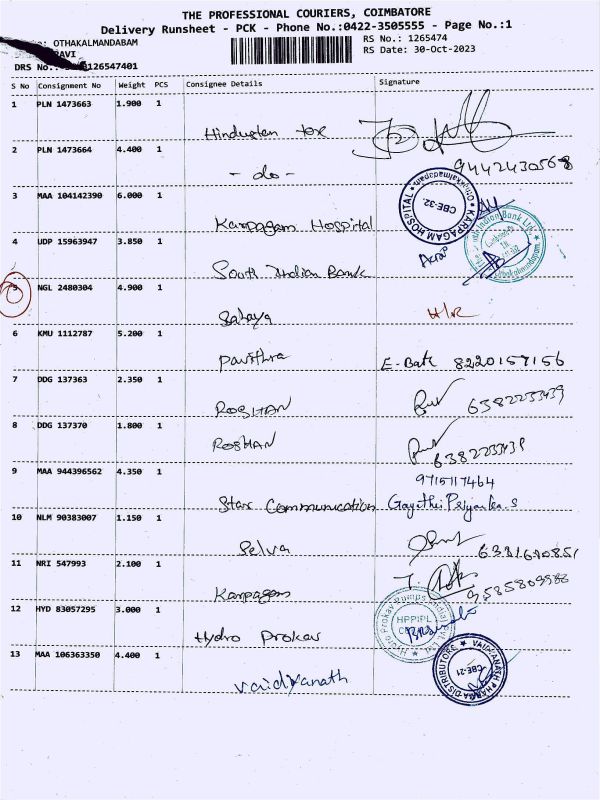 THE PROFESSIONAL COURIERS, COIMBATORE
Delivery Runsheet - PCK - Phone No.:0422-3505555 - Page No.:1
OTHAKALMANDABAM
RAVI
RS No.: 1265474
RS Date: 30-Oct-2023
DRS No.: 126547401
S No Consignment No Weight PCS Consignee Details Signature
1 PLN 1473663 1.900 1
Hindustan tex
2 PLN 1473664 4.400 1 9442430568
- do -
3 MAA 104142390 6.000 1
Karpagam Hospital
KARPAGAM HOSPITAL
CBE-32.
4 UDP 15963947 3.850 1
South Indian Bank
5 NGL 2480304 4.900 1
Sahaya H/R
6 KMU 1112787 5.200 1
Pavithra E-BatE 8220157156
7 DDG 137363 2.350 1
ROSHAN 6382233439
8 DDG 137370 1.800 1
ROSHAN
9 MAA 944396562 4.350 1 9715117464
Star Communication Gayathri Priyanka.S
10 NLM 90383007 1.150 1
Selva
11 NRI 547993 2.100 1
Karpagam 9585809988
12 HYD 83057295 3.000 1
Hydro Prokav
HPPIPL
13 MAA 106363350 4.400 1
Vaidyanath
VAIDYANATH PHARMA DISTRIBUTORE
CBE-21